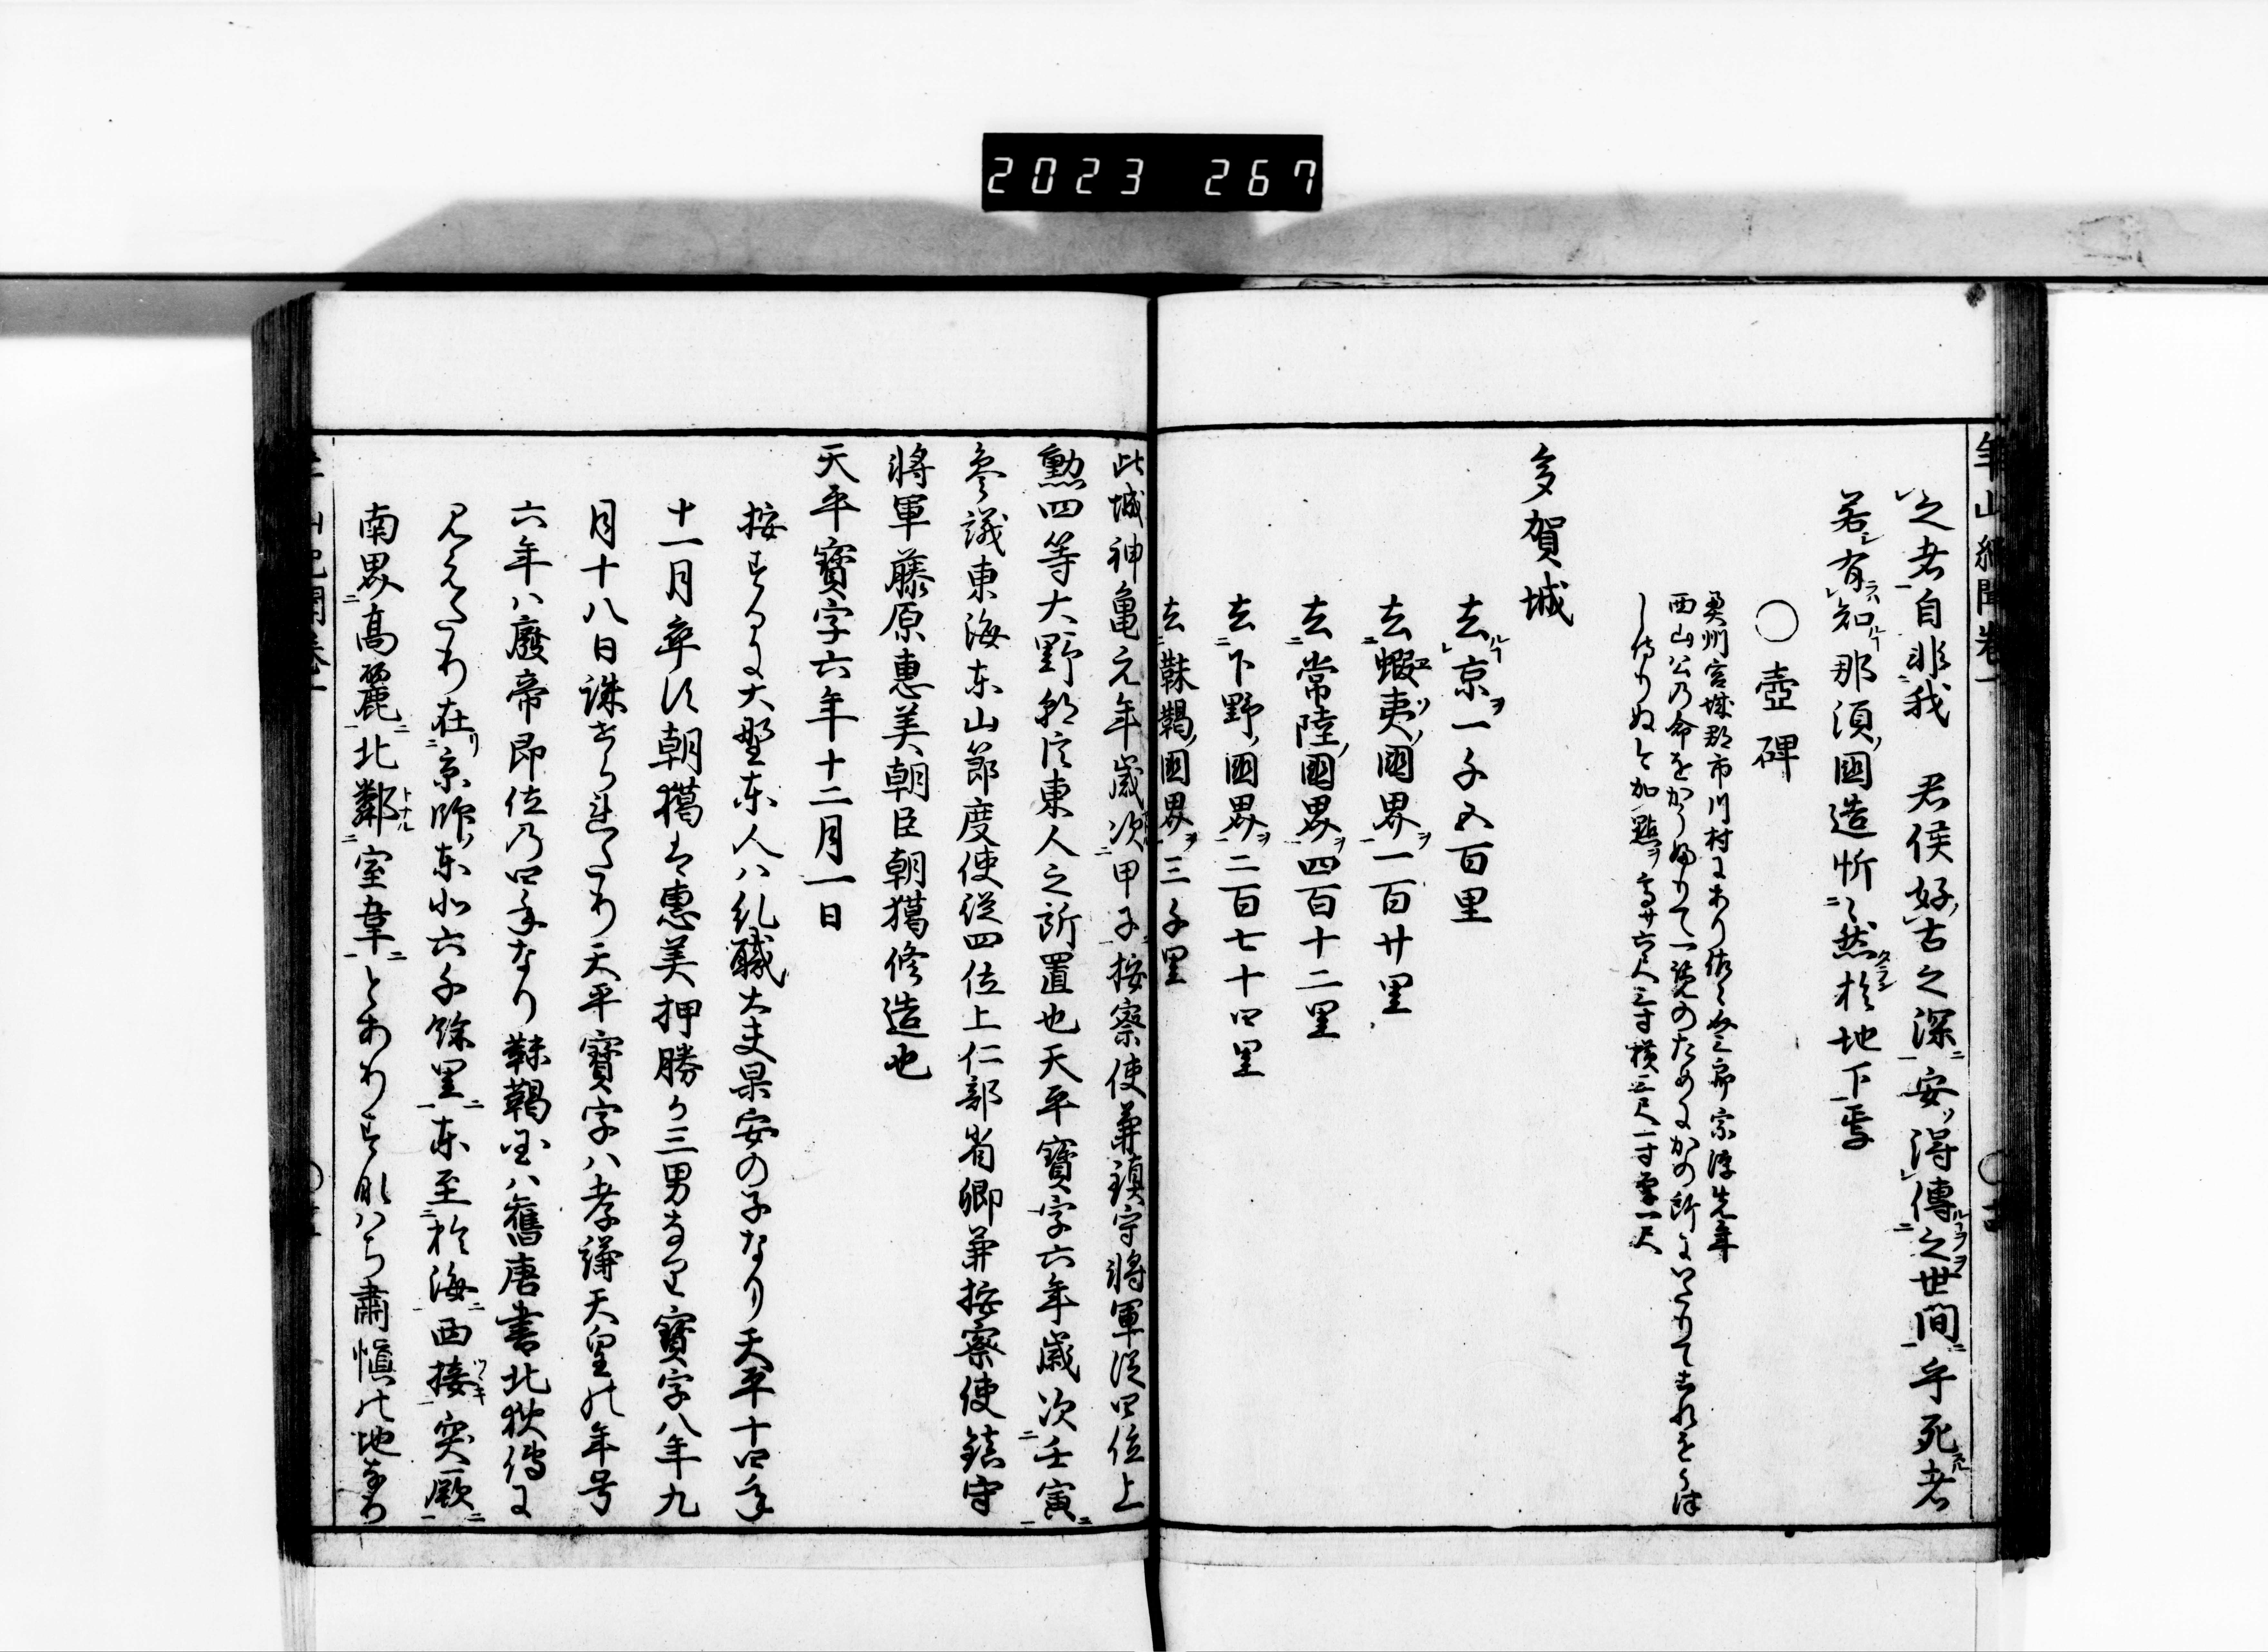 2023 267
年山紀聞卷一
之者自非我　君侯好古之深安得傳之世間乎死者
若有知那須國造忻々然於地下焉
〇壺碑
奥州宮城郡市川村にあり佐々
宗淳先年
西山公の命をかうふりて一覽のためにかの所にいたりてこれをうつ
し侍りぬと加點ヲ高サ六尺三寸橫三尺一寸厚一尺
多賀城
去京一千五百里
去蝦夷國界一百廿里
去常陸國界四百十二里
去下野國界二百七十四里
去靺鞨國界三千里
此城神亀元年歲次甲子按察使兼鎮守將軍從四位上
勲四等大野朝臣東人之所置也天平寶字六年歲次壬寅
參議東海東山節度使從四位上仁部省卿兼按察使鎮守
將軍藤原惠美朝臣朝獦修造也
天平寶字六年十二月一日
按するに大野東人ハ糺職大夫果安の子なり天平十四年
十一月卒す朝獦は惠美押勝か三男なり寶字八年九
月十八日誅せられたり天平寶字ハ孝謙天皇の年号
六年ハ廢帝即位の四年なり靺鞨国ハ舊唐書北狄傳に
見えたり在京師東北六千餘里東至於海西接突厥
南界高麗北鄰室韋とありすなはち肅愼の地なり